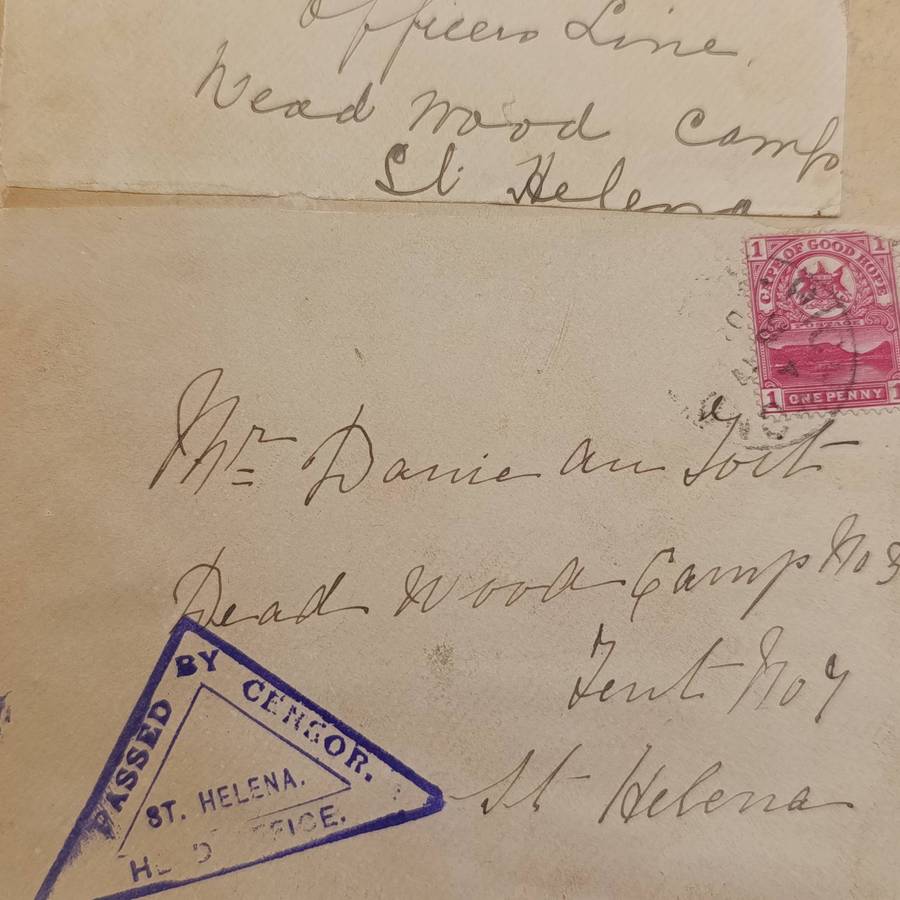 Officers Line,
Dead Wood Camp
St. Helena
1 CAPE OF GOOD HOPE 1
POSTAGE
1 ONE PENNY 1
Mr Danie du Toit
Dead Wood Camp No 3
Tent No 7
St Helena
PASSED BY CENSOR.
ST. HELENA.